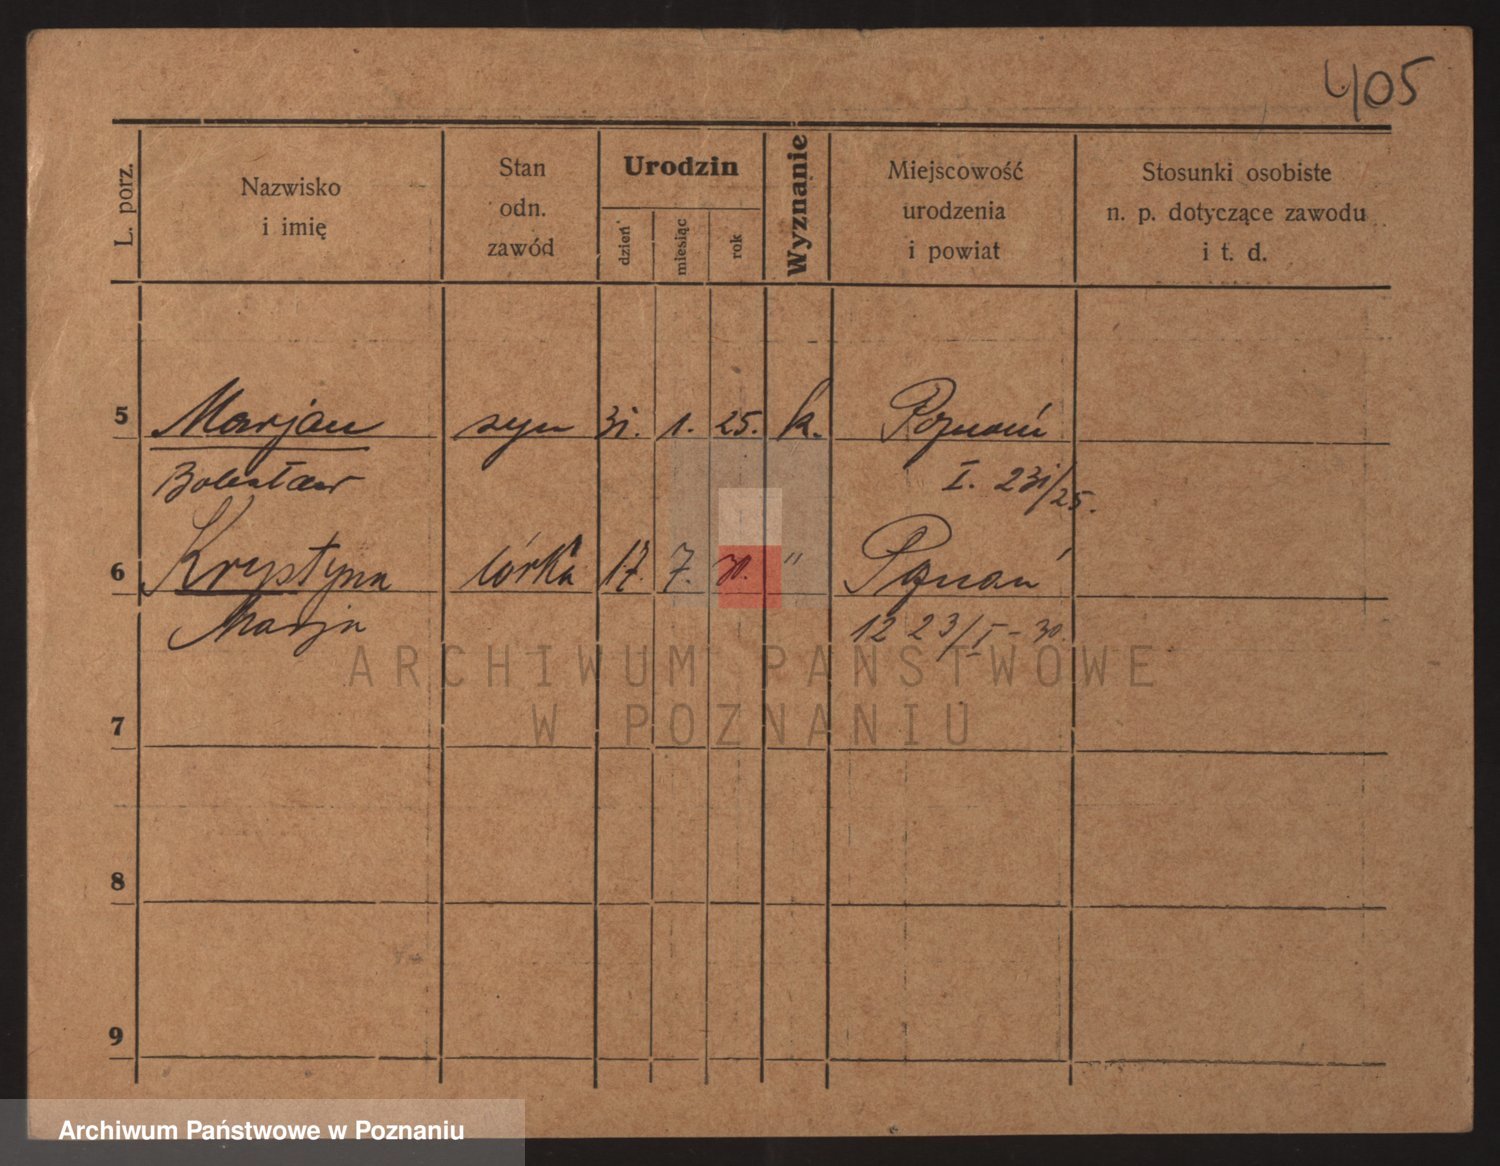 405
L. porz.
Nazwisko
i imię
Stan
odn.
zawód
Urodzin
dzień
miesiąc
rok
Wyznanie
Miejscowość
urodzenia
i powiat
Stosunki osobiste
n. p. dotyczące zawodu
i t. d.
5 Marjan syn 31. 1. 25. k. Poznań
Bolesław I. 231/25.
6 Krystyna córka 17. 7. 30. " Poznań
Marja 12 23/I-30.
7
8
9
ARCHIWUM PAŃSTWOWE
W POZNANIU
Archiwum Państwowe w Poznaniu